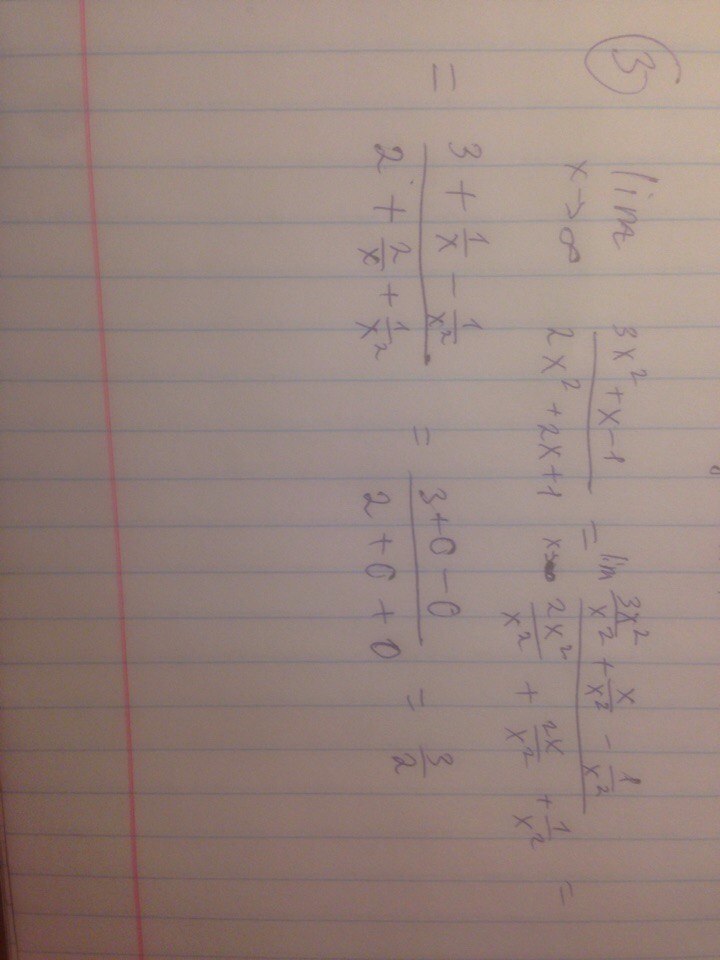 3
lim x→∞ (3x² + x - 1)/(2x² + 2x + 1) = lim x→∞ (3x²/x² + x/x² - 1/x²)/(2x²/x² + 2x/x² + 1/x²) =
= (3 + 1/x - 1/x²)/(2 + 2/x + 1/x²) = (3 + 0 - 0)/(2 + 0 + 0) = 3/2